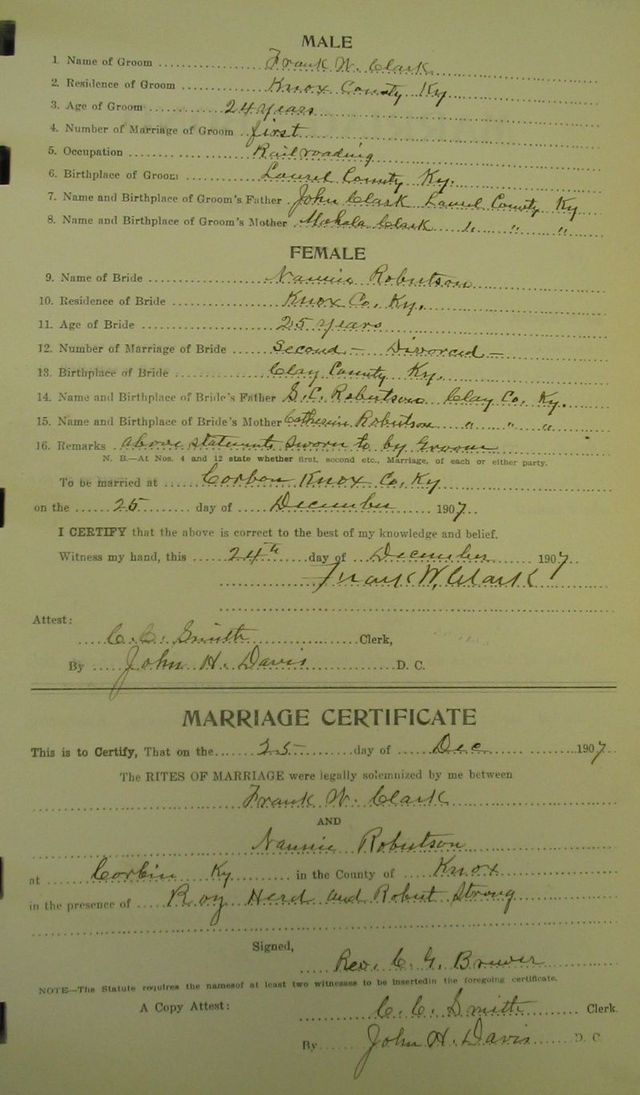 MALE
1 Name of Groom Frank W. Clark
2. Residence of Groom Knox County Ky
3. Age of Groom 24 years
4. Number of Marriage of Groom first
5. Occupation Railroading
6. Birthplace of Groom Laurel County Ky.
7. Name and Birthplace of Groom's Father John Clark Laurel County Ky
8. Name and Birthplace of Groom's Mother Mahala Clark " " "
FEMALE
9. Name of Bride Nannie Robertson
10. Residence of Bride Knox Co. Ky.
11. Age of Bride 25 years
12. Number of Marriage of Bride Second - Divorced -
13. Birthplace of Bride Clay County Ky.
14. Name and Birthplace of Bride's Father S.C. Robertson Clay Co. Ky.
15. Name and Birthplace of Bride's Mother Robertson " " "
16. Remarks above statements sworn to by Groom
N. B.—At Nos. 4 and 12 state whether first, second etc., Marriage, of each or either party.
To be married at Corbon Knox Co, Ky
on the 25 day of December 1907.
I CERTIFY that the above is correct to the best of my knowledge and belief.
Witness my hand, this 24th day of December 1907
Frank W. Clark
Attest:
C. C. Smith Clerk,
By John H. Davis D. C.
MARRIAGE CERTIFICATE
This is to Certify, That on the 25 day of Dec 1907
The RITES OF MARRIAGE were legally solemnized by me between
Frank W. Clark
AND
Nannie Robertson
at Corbin Ky in the County of Knox
in the presence of Roy Herd and Robert Strong
Signed,
Rev. C. G. Brewer
NOTE—The Statute requires the namesof at least two witnesses to be insertedin the foregoing certificate.
A Copy Attest: C. C. Smith Clerk.
By John H. Davis D. C